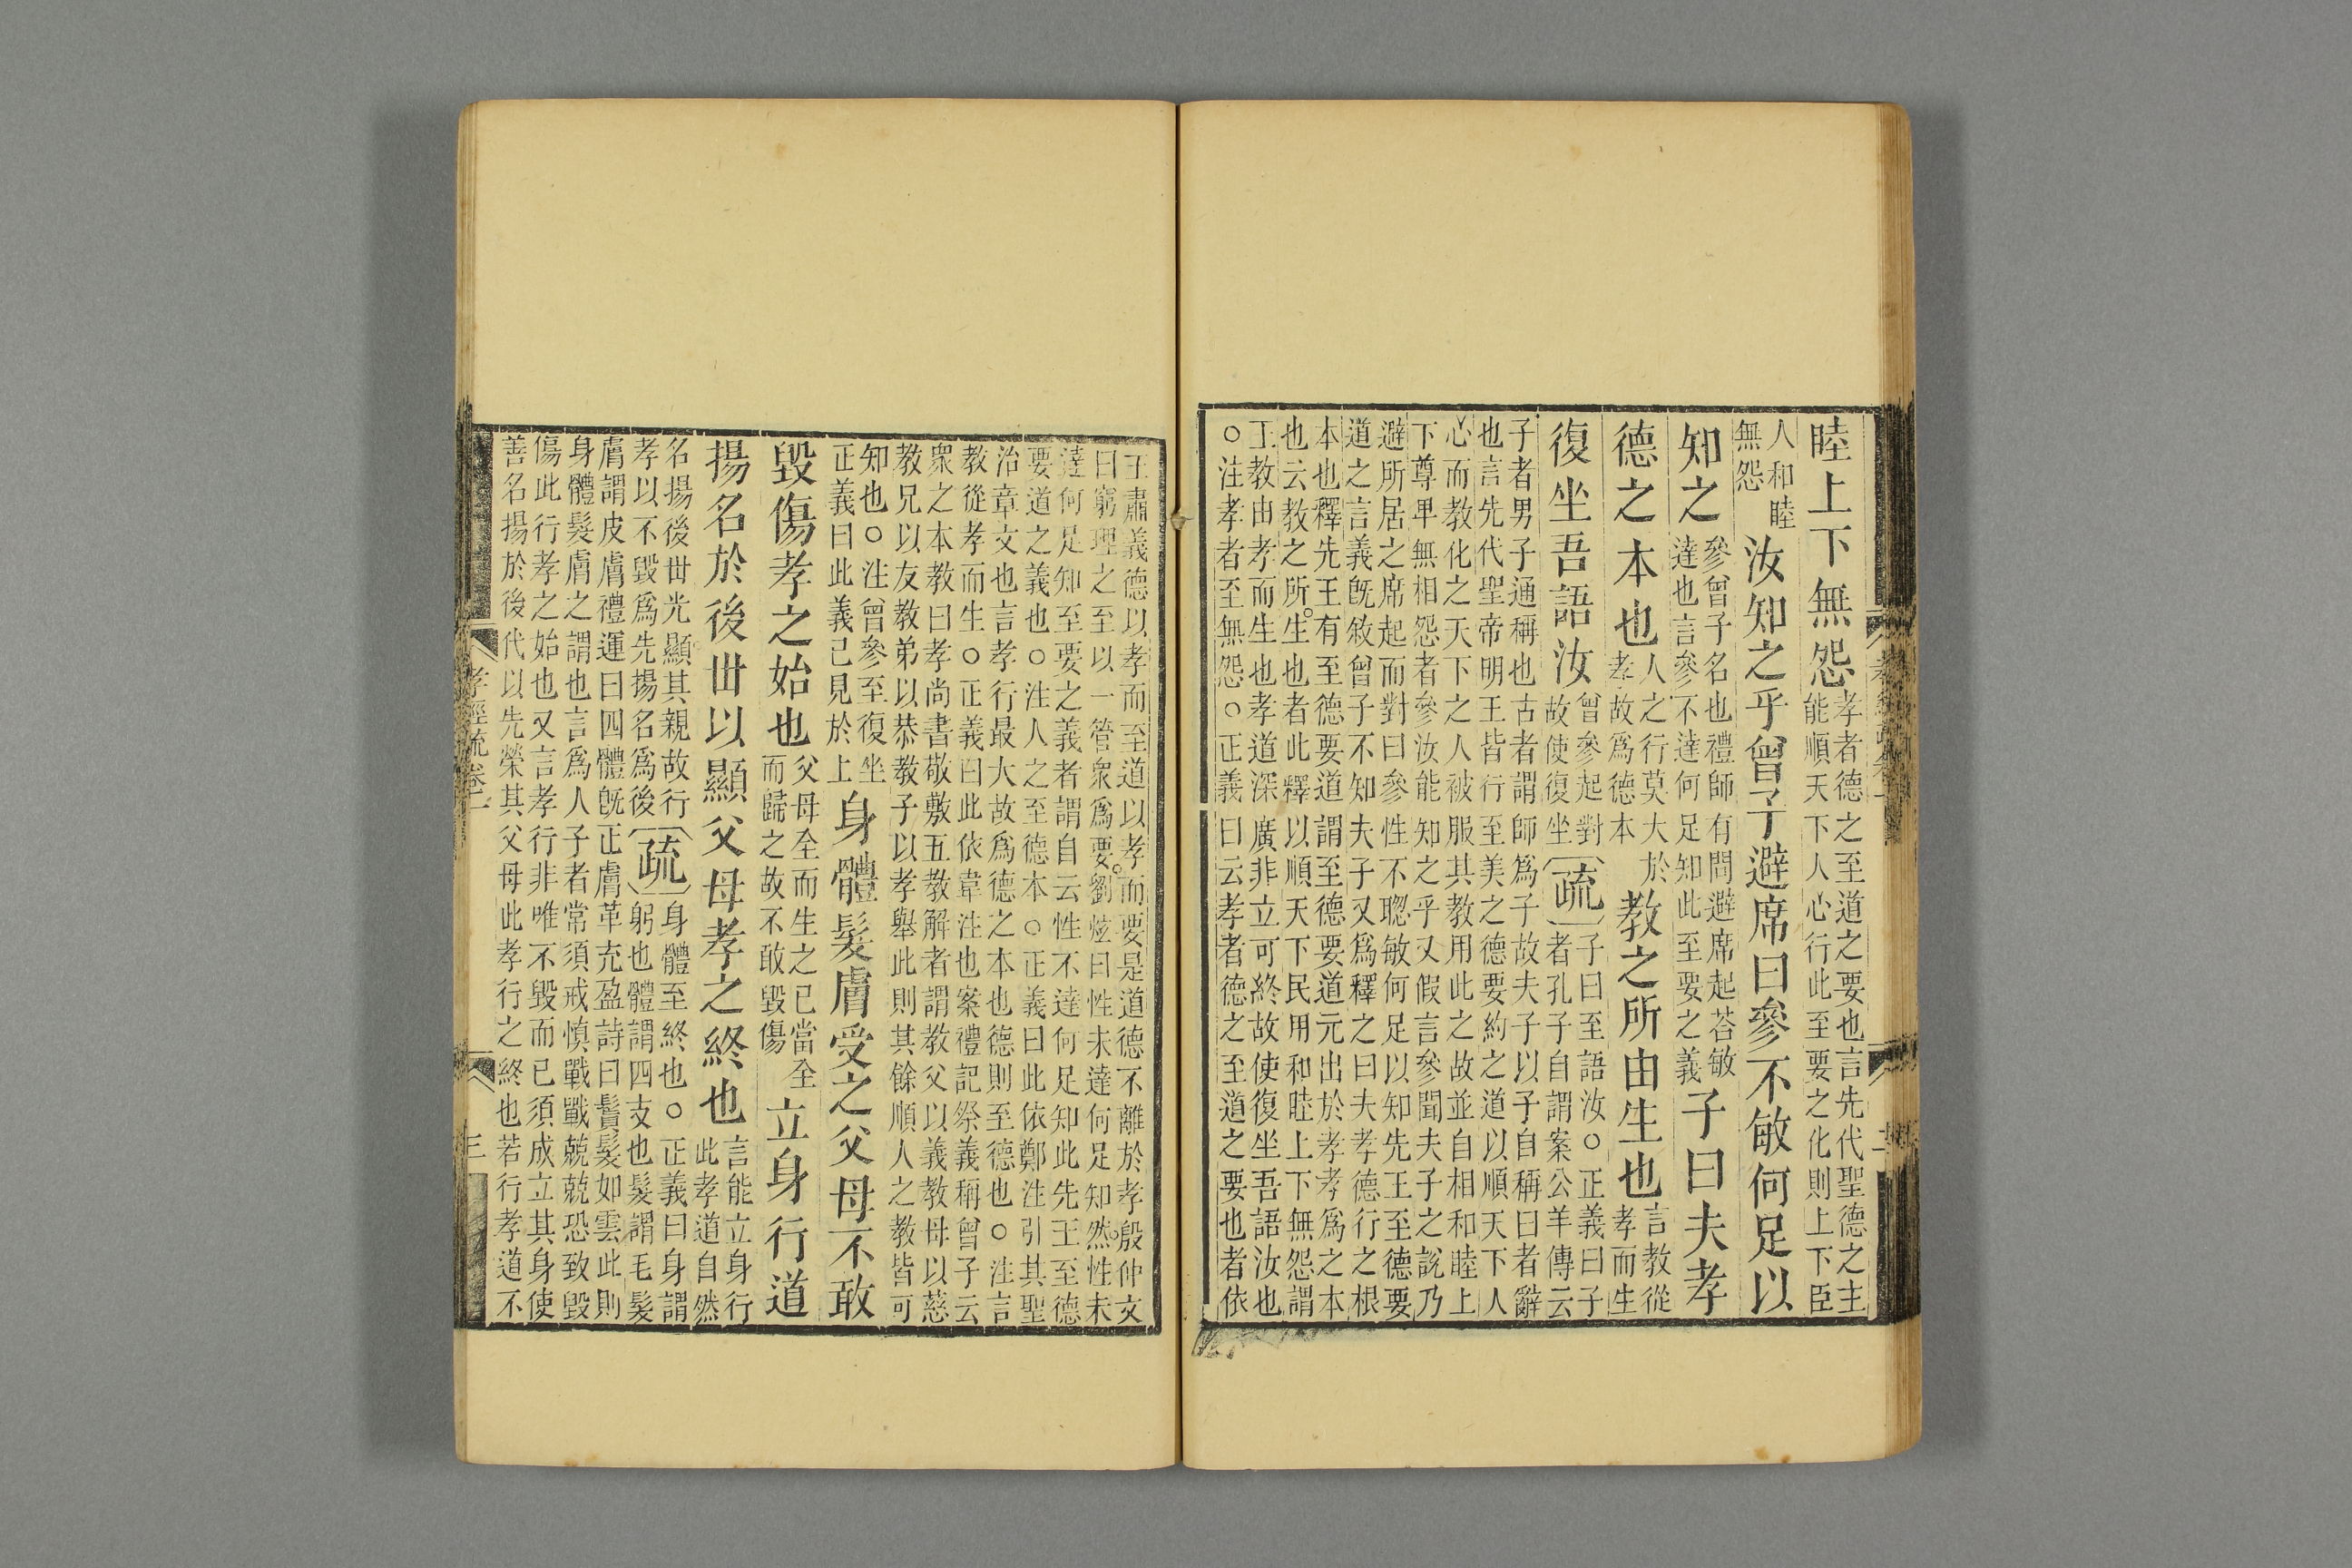 睦上下無怨孝者德之至道之要也言先代聖德之主能順天下人心行此至要之化則上下臣
人和睦無怨汝知之乎曾子避席曰參不敏何足以
知之參曾子名也禮師有問避席起荅敏達也言參不達何足知此至要之義子曰夫孝
德之本也人之行莫大於孝故爲德本教之所由生也言教從孝而生
復坐吾語汝曾參起對故使復坐疏子曰至語汝○正義曰子者孔子自謂案公羊傳云
子者男子通稱也古者謂師爲子故夫子以子自稱曰者辭
也言先代聖帝明王皆行至美之德要約之道以順天下人
心而教化之天下之人被服其教用此之故並自相和睦上
下尊卑無相怨者參汝能知之乎又假言參聞夫子之說乃
避所居之席起而對曰參性不聦敏何足以知先王至德要
道之言義旣敘曾子不知夫子又爲釋之曰夫孝德行之根
本也釋先王有至德要道謂至德要道元出於孝孝爲之本
也云教之所生也者此釋以順天下民用和睦上下無怨謂
王教由孝而生也孝道深廣非立可終故使復坐吾語汝也
○注孝者至無怨○正義曰云孝者德之至道之要也者依
王肅義德以孝而至道以孝而要是道德不離於孝殷仲文
曰窮理之至以一管衆爲要劉炫曰性未達何足知然性未
達何足知至要之義者謂自云性不達何足知此先王至德
要道之義也○注人之至德本○正義曰此依鄭注引其聖
治章文也言孝行最大故爲德之本也德則至德也○注言
教從孝而生○正義曰此依韋注也案禮記祭義稱曾子云
衆之本教曰孝尚書敬敷五教解者謂教父以義教母以慈
教兄以友教弟以恭教子以孝舉此則其餘順人之教皆可
知也○注曾參至復坐正義曰此義已見於上身體髮膚受之父母不敢
毀傷孝之始也父母全而生之已當全而歸之故不敢毀傷立身行道
揚名於後世以顯父母孝之終也言能立身行此孝道自然
名揚後世光顯其親故行孝以不毀爲先揚名爲後疏身體至終也○正義曰身謂躬也體謂四支也髮謂毛髮
膚謂皮膚禮運曰四體旣正膚革充盈詩曰鬒髮如雲此則
身體髮膚之謂也言爲人子者常須戒慎戰戰兢兢恐致毀
傷此行孝之始也又言孝行非唯不毀而已須成立其身使
善名揚於後代以先榮其父母此孝行之終也若行孝道不
孝經疏卷一
三